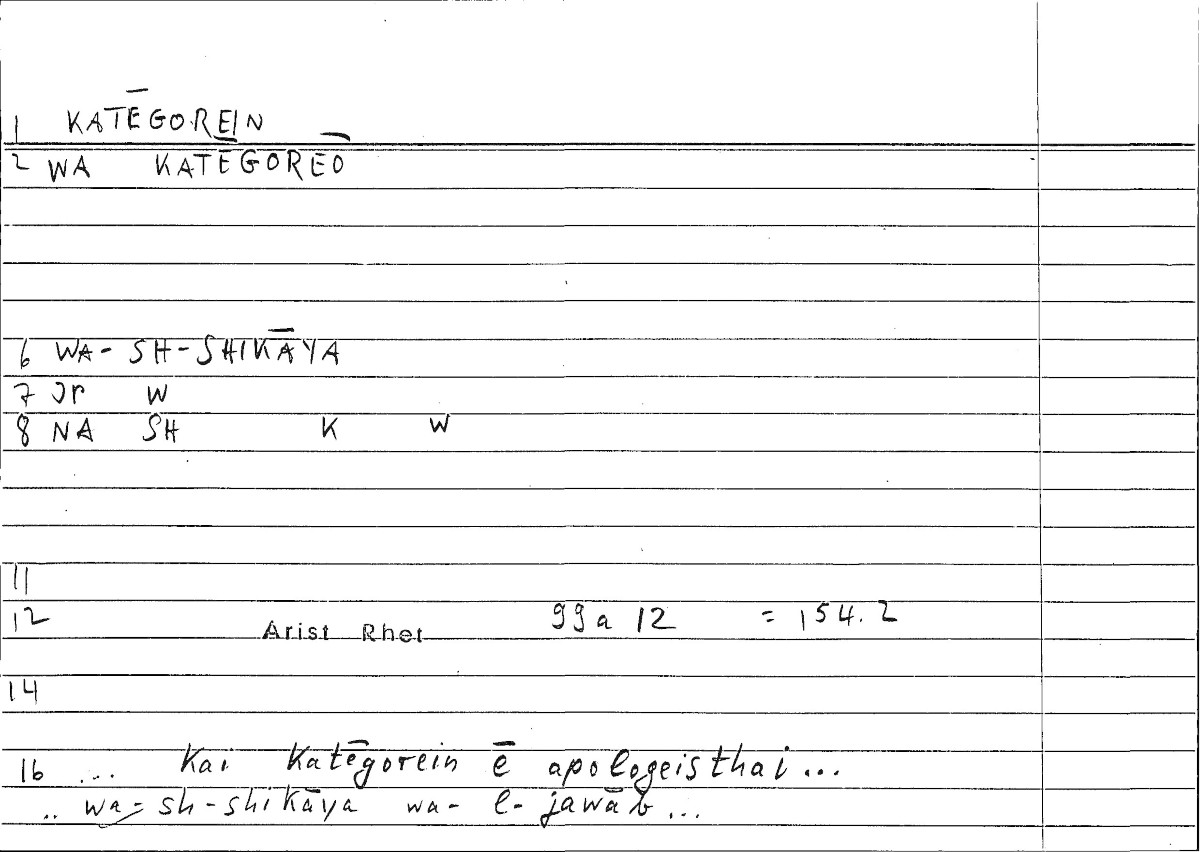 1 KATĒGOREIN
2 WA KATĒGOREŌ
6 WA-SH-SHIKĀYA
7 Jr W
8 NA SH K W
11
12 Arist Rhet 99a12 = 154.2
14
16 ... Kai Katēgorein ē apologeisthai...
.. wa-sh-shikāya wa-l-jawāb...